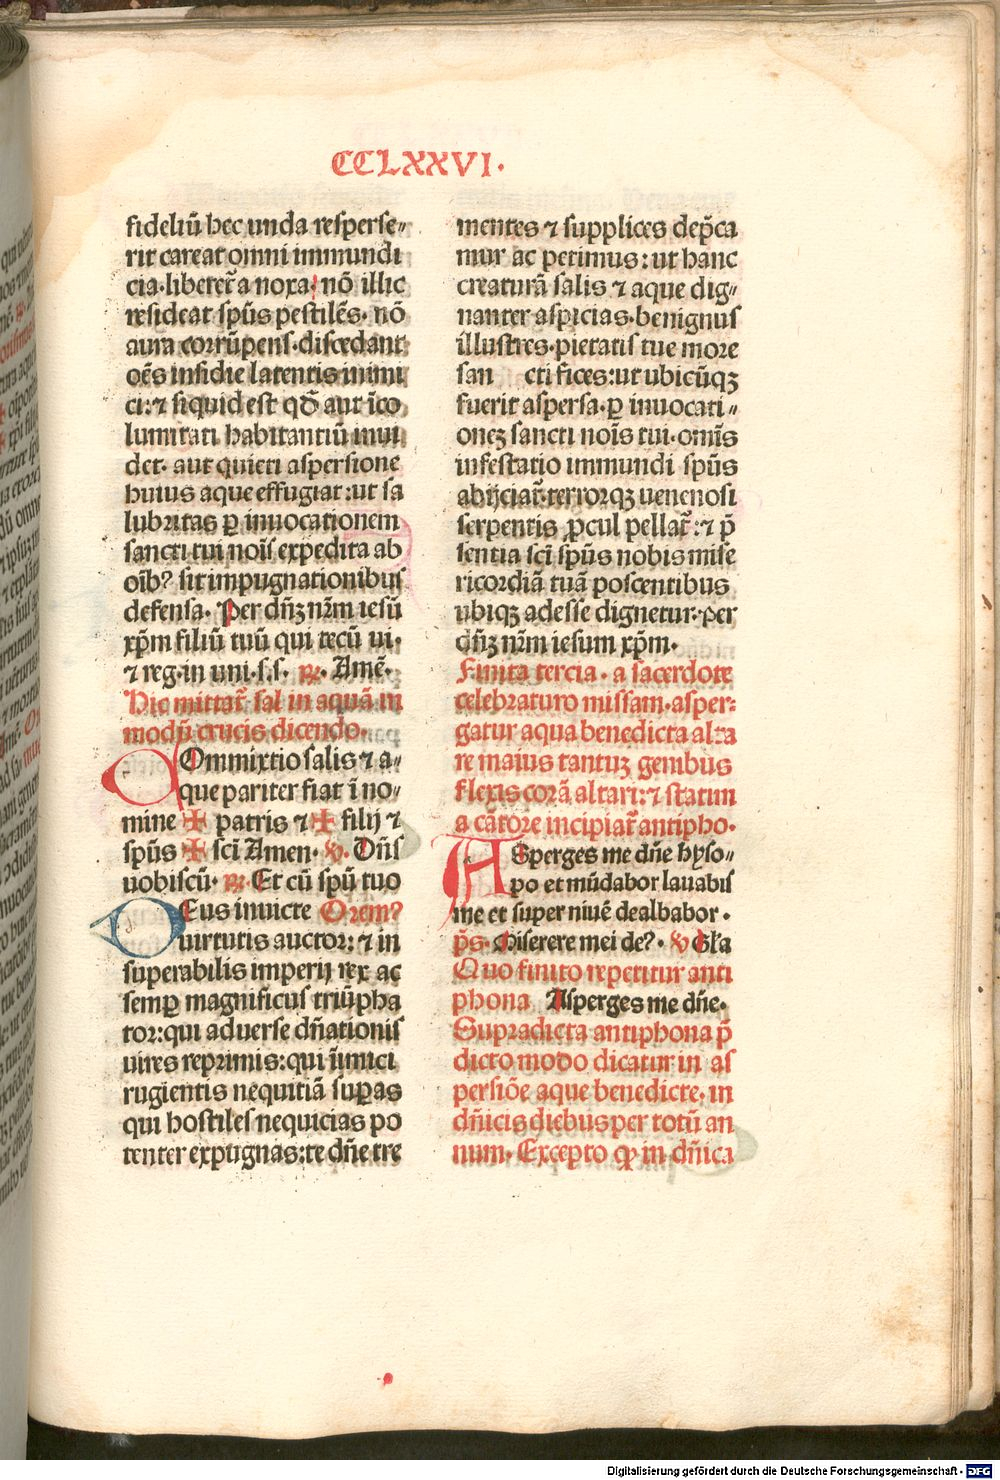 CCLXXVI.
fideliū hec unda resperse〃
rit careat omni immundi
cia·liberet᷑ a noxa· nō illic
resideat sp̄us pestilēs· nō
aura corrūpens·discedant
oēs insidie latentis inimi
ci:⁊ siquid est qđ aut īco
lumitati habitantiū inui
det· aut quieti aspersione
huius aque effugiat:ut sa
lubritas ꝑ inuocationem
sancti tui noīs expedita ab
oībꝰ sit impugnationibus
defensa· Per dn̄ꝫ nr̄m iesū
xp̄m filiū tuū qui tecū ui·
⁊ reg·in uni·s.s. ꝶ· Amē·
Hic mittat᷑ sal in aquā in
modū crucis dicendo·
COmmixtio salis ⁊ a〃
que pariter fiat ī no〃
mine ✠ patris ⁊ ✠ filij ⁊
sp̄us ✠ sc̄i Amen· ℣· Dn̄s
uobiscū· ꝶ· Et cū sp̄u tuo
DEus inuicte Oremꝰ
uirtutis auctor: ⁊ in
superabilis imperij rex ac
semꝑ magnificus triūpha
tor:qui aduerse dn̄ationis
uires reprimis:qui īimici
rugientis nequitiā suꝑas
qui hostiles nequicias po
tenter expugnas:te dn̄e tre
mentes ⁊ supplices dep̄ca
mur ac petimus: ut hanc
creaturā salis ⁊ aque dig〃
nanter aspicias·benignus
illustres·pietatis tue more
san cti fices:ut ubicūqꝫ
fuerit aspersa·ꝑ inuocati〃
oneꝫ sancti noīs tui·omīs
infestatio immundi sp̄us
abijciat᷑·terrorqꝫ uenenosi
serpentis ꝓcul pellat᷑:⁊ p̄
sentia sc̄i sp̄us nobis mise
ricordiā tuā poscentibus
ubiqꝫ adesse dignetur·per
dn̄ꝫ nr̄m iesum xp̄m·
Finita tercia· a sacerdote
celebraturo missam·asper〃
gatur aqua benedicta alta
re maius tantuꝫ genibus
flexis corā altari:⁊ statim
a cātore incipiat᷑ antipho·
ASperges me dn̄e hyso〃
po et mūdabor lauabis
me et super niuē dealbabor ·
p̄s· Miserere mei deꝰ· ℣ Gl̄a
Quo finito repetitur anti
phona Asperges me dn̄e·
Supradicta antiphona p̄
dicto modo dicatur in as
persiōe aque benedicte· in
dn̄icis diebus per totū an
num· Excepto ꝙ in dn̄ica
Digitalisierung gefördert durch die Deutsche Forschungsgemeinschaft - DFG